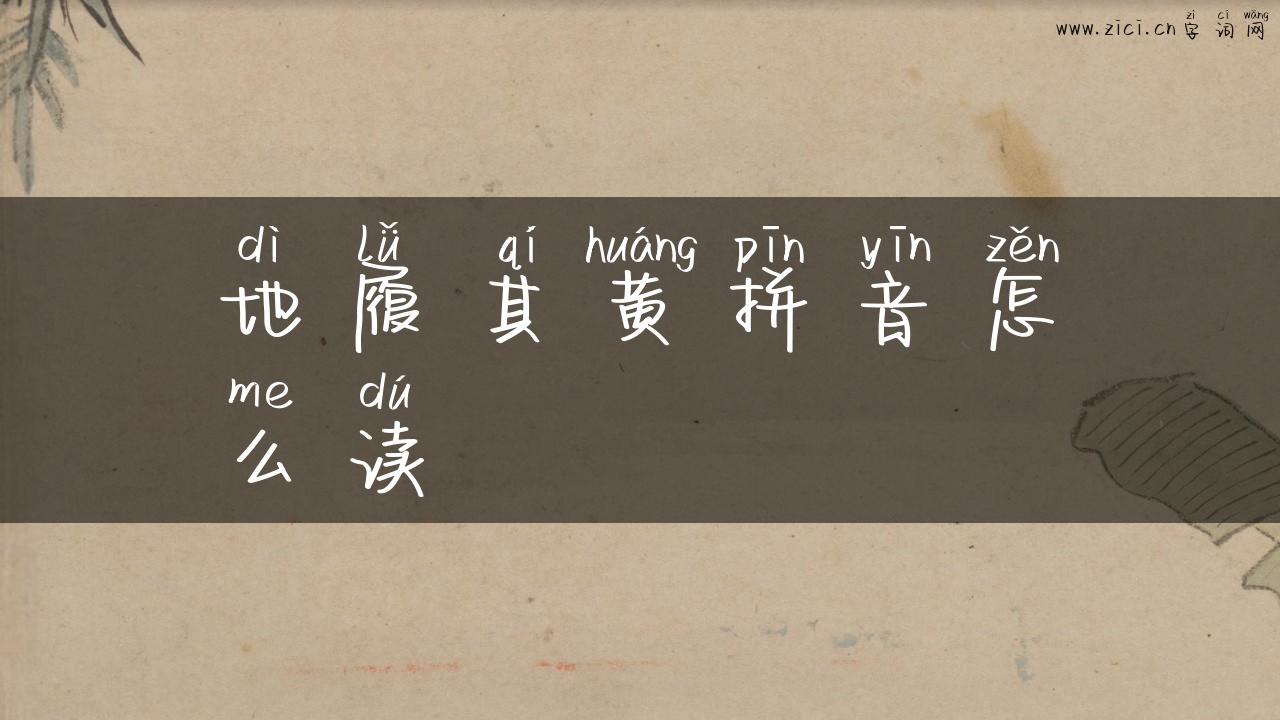 zì cí wǎng
www.zici.cn 字词网
dì lǚ qí huáng pīn yīn zěn
地履其黄拼音怎
me dú
么读